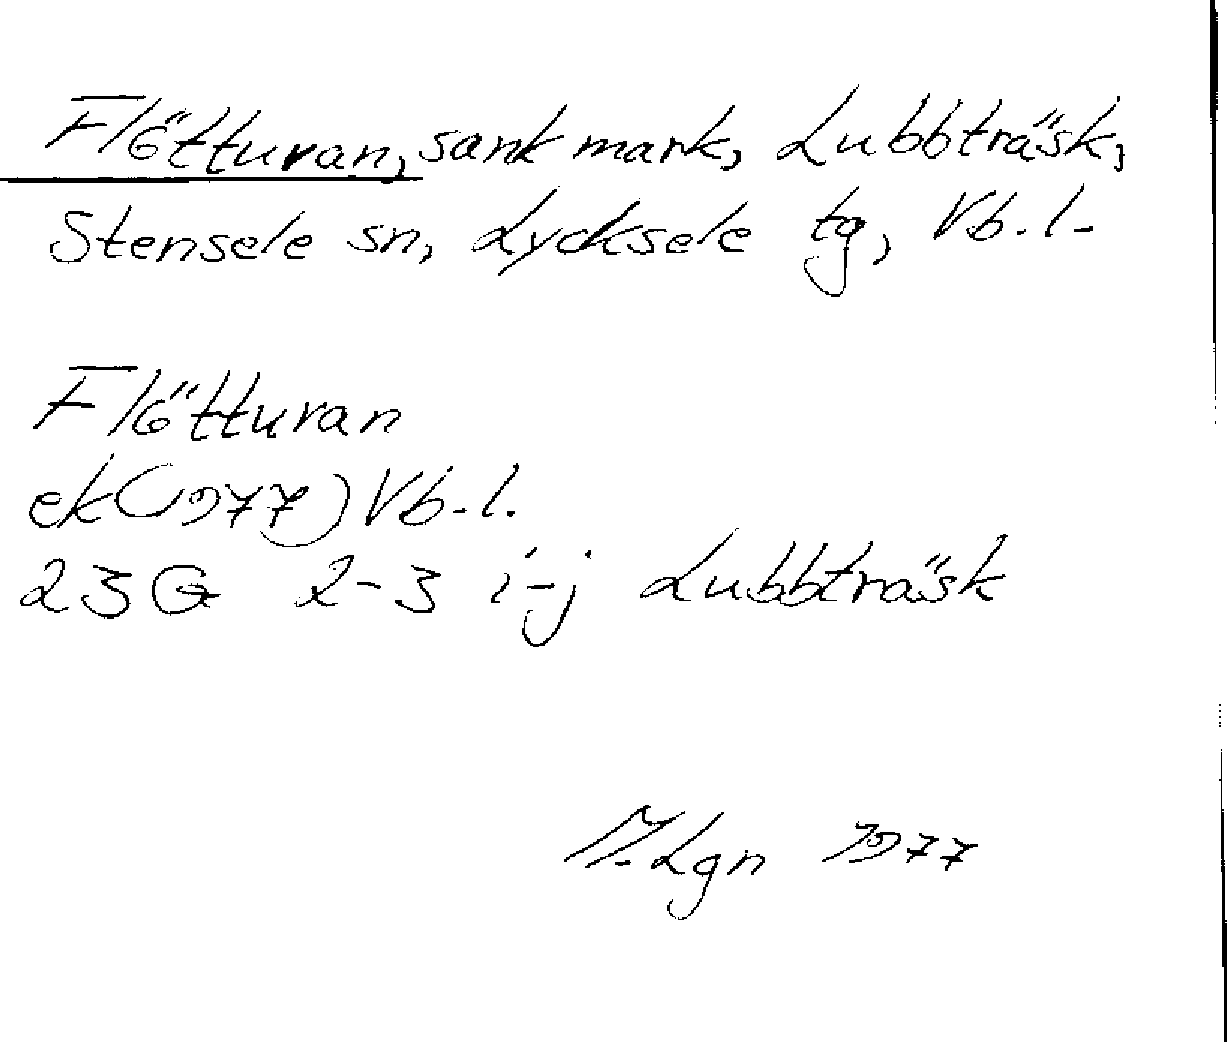 Flötturan, sank mark, Lubbträsk,
Stensele sn, Lycksele tg, Vb.l.
Flötturan
ek (1977) Vb.l.
23G 2-3 i-j Lubbträsk
M.Lgn 1977